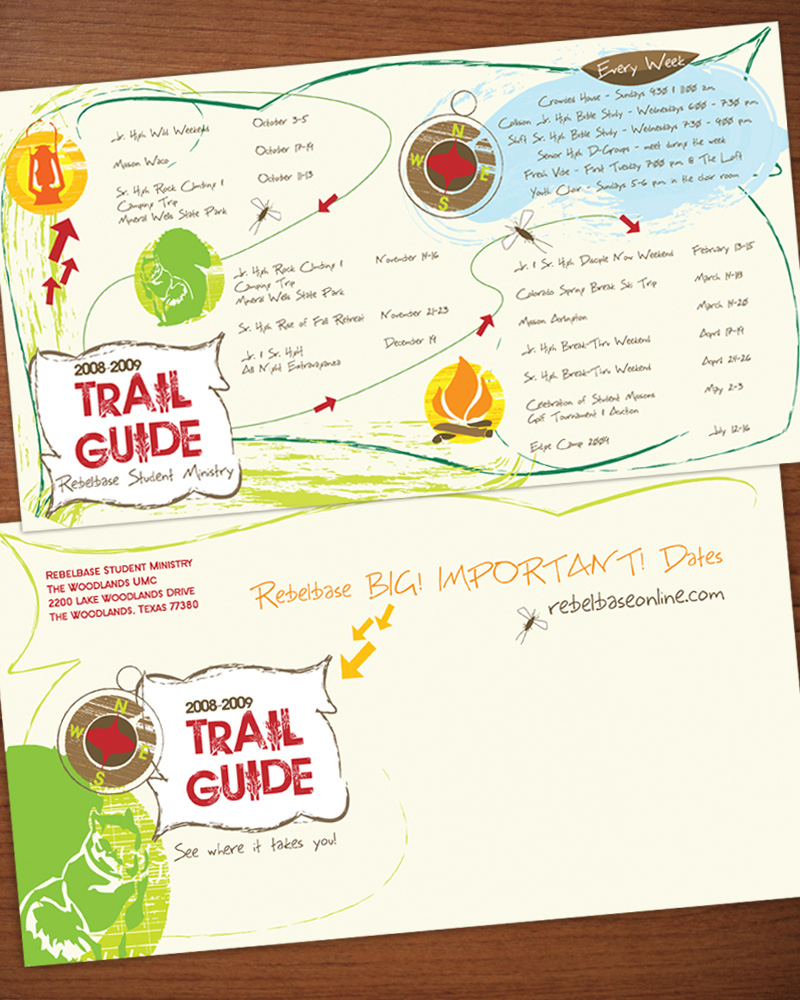 Every Week
Crowded House - Sundays 9:30 & 11:00 am
Collision Jr. High Bible Study - Wednesdays 6:00 - 7:30 pm
Shift Sr. High Bible Study - Wednesdays 7:30 - 9:00 pm
Senior High D-Groups - meet during the week
Fresh Vibe - First Tuesday 7:00 pm @ The Loft
Youth Choir - Sundays 5-6 pm in the choir room
N
W
E
S
Jr. High Wild Weekends October 3-5
Mission Waco October 17-19
Sr. High Rock Climbing & October 11-13
Camping Trip
Mineral Wells State Park
Jr. High Rock Climbing & November 14-16
Camping Trip
Mineral Wells State Park
Sr. High Rise of Fall Retreat November 21-23
Jr. & Sr. High December 19
All Night Extravaganza
Jr. & Sr. High Disciple Now Weekend February 13-15
Colorado Spring Break Ski Trip March 14-18
Mission Arlington March 14-20
Jr. High Break-Thru Weekend April 17-19
Sr. High Break-Thru Weekend April 24-26
Celebration of Student Missions May 2-3
Golf Tournament & Auction
Edge Camp 2009 July 12-16
2008-2009
TRAIL
GUIDE
Rebelbase Student Ministry
Rebelbase Student Ministry
The Woodlands UMC
2200 Lake Woodlands Drive
The Woodlands, Texas 77380
Rebelbase BIG! IMPORTANT! Dates
rebelbaseonline.com
N
W
E
S
2008-2009
TRAIL
GUIDE
See where it takes you!